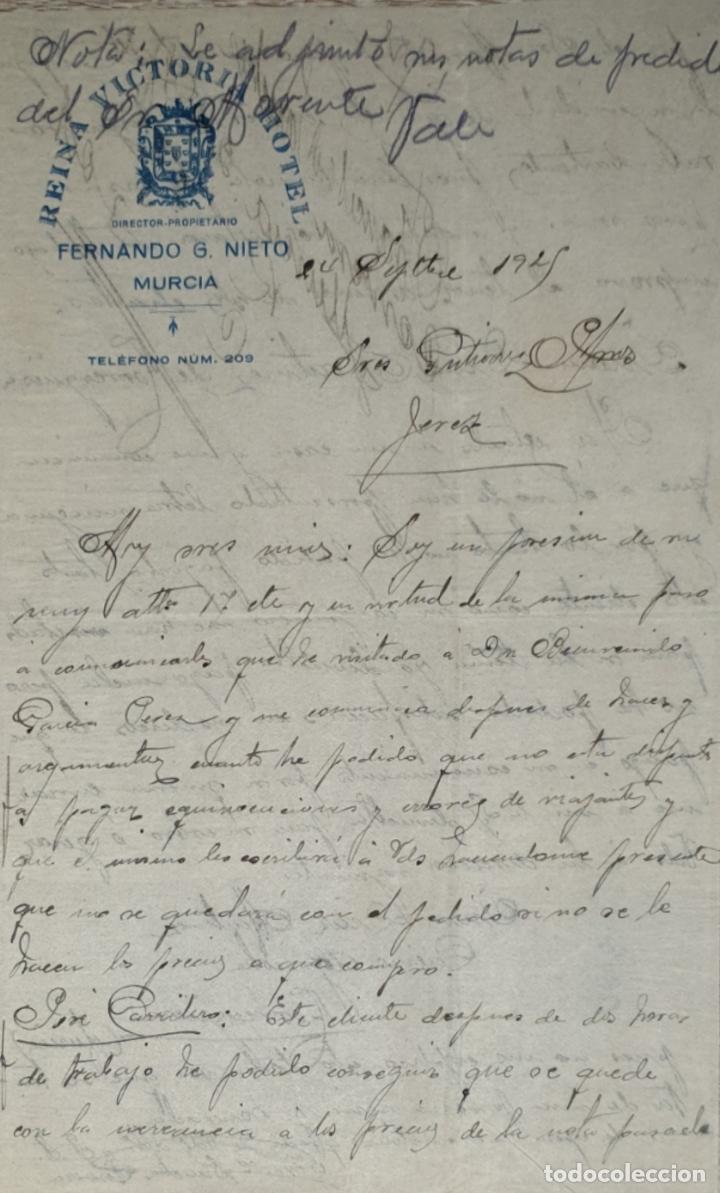 Nota: Se adjunto mis notas de pedido
del Sr. Morente Vale
REINA VICTORIA HOTEL.
DIRECTOR-PROPIETARIO
FERNANDO G. NIETO
MURCIA
TELÉFONO NÚM. 209
24 Septbre 1925
Sres Gutierrez Hnos
Jerez
Muy sres mios: Soy en posesion de su
muy atta 17 cte y en virtud de la misma paso
á comunicarles que he visitado á Dn Bienvenido
Garcia Perez y me comunica despues de hacer y
argumentar cuanto he podido que no esta dispuesto
á pagar equivocaciones y errores de viajantes y
que él mismo les escribirá á Vds haciendome presente
que no se quedará con el pedido si no se le
hacen los precios a que compro.
José Carrilero: Este cliente despues de dos horas
de trabajo he podido conseguir que se quede
con la mercancia á los precios de la nota pasada
todocoleccion.net